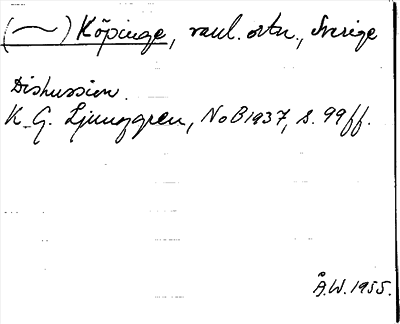 (~) Köpinge, vanl. ortn., Sverige
Diskussion.
K. G. Ljunggren, NoB 1937, s. 99 ff.
Å.W. 1955.